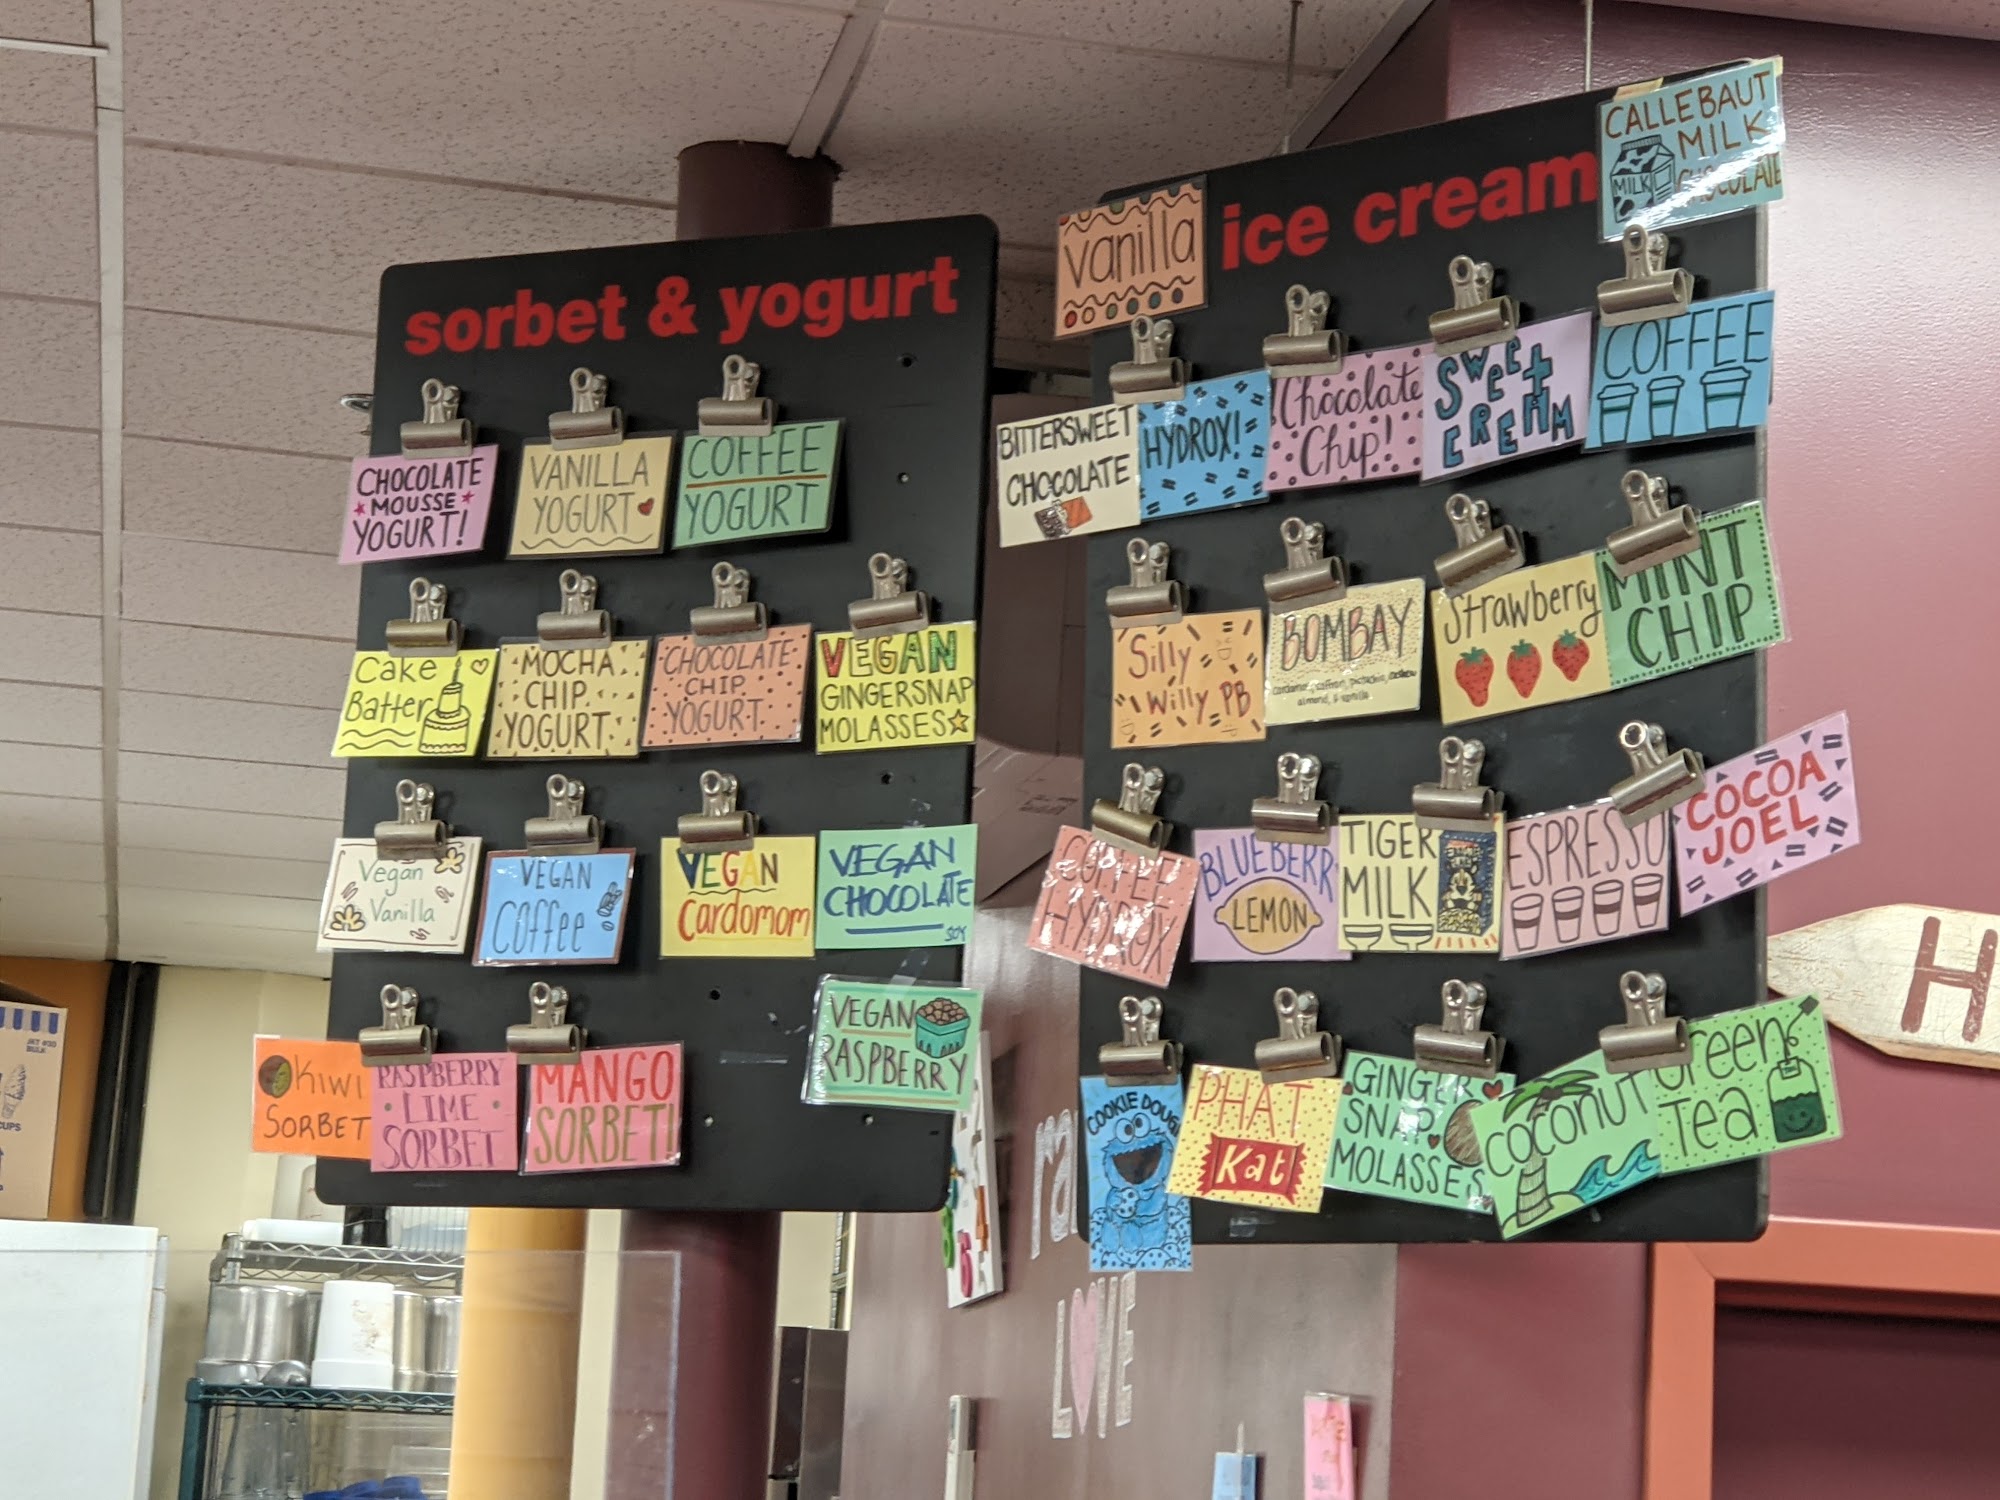 sorbet & yogurt
CHOCOLATE
MOUSSE
YOGURT!
VANILLA
YOGURT
COFFEE
YOGURT
Cake
Batter
MOCHA
CHIP
YOGURT
CHOCOLATE
CHIP
YOGURT
VEGAN
GINGERSNAP
MOLASSES
Vegan
Vanilla
VEGAN
COFFEE
VEGAN
Cardamom
VEGAN
CHOCOLATE
SOY
KIWI
SORBET
RASPBERRY
LIME
SORBET
MANGO
SORBET!
VEGAN
RASPBERRY
ice cream
vanilla
CALLEBAUT
MILK
CHOCOLATE
MILK
BITTERSWEET
CHOCOLATE
HYDROX!
Chocolate
Chip!
SWEET
CREAM
COFFEE
Silly
Willy PB
BOMBAY
cardamom, saffron, pistachio, cashew
almond, & vanilla
Strawberry
MINT
CHIP
COFFEE
HYDROX
BLUEBERR
LEMON
TIGER
MILK
ESPRESSO
COCOA
JOEL
COOKIE DOUGH
PHAT
Kat
GINGER
SNAP
MOLASSES
coconut
Green
Tea
H
LOVE